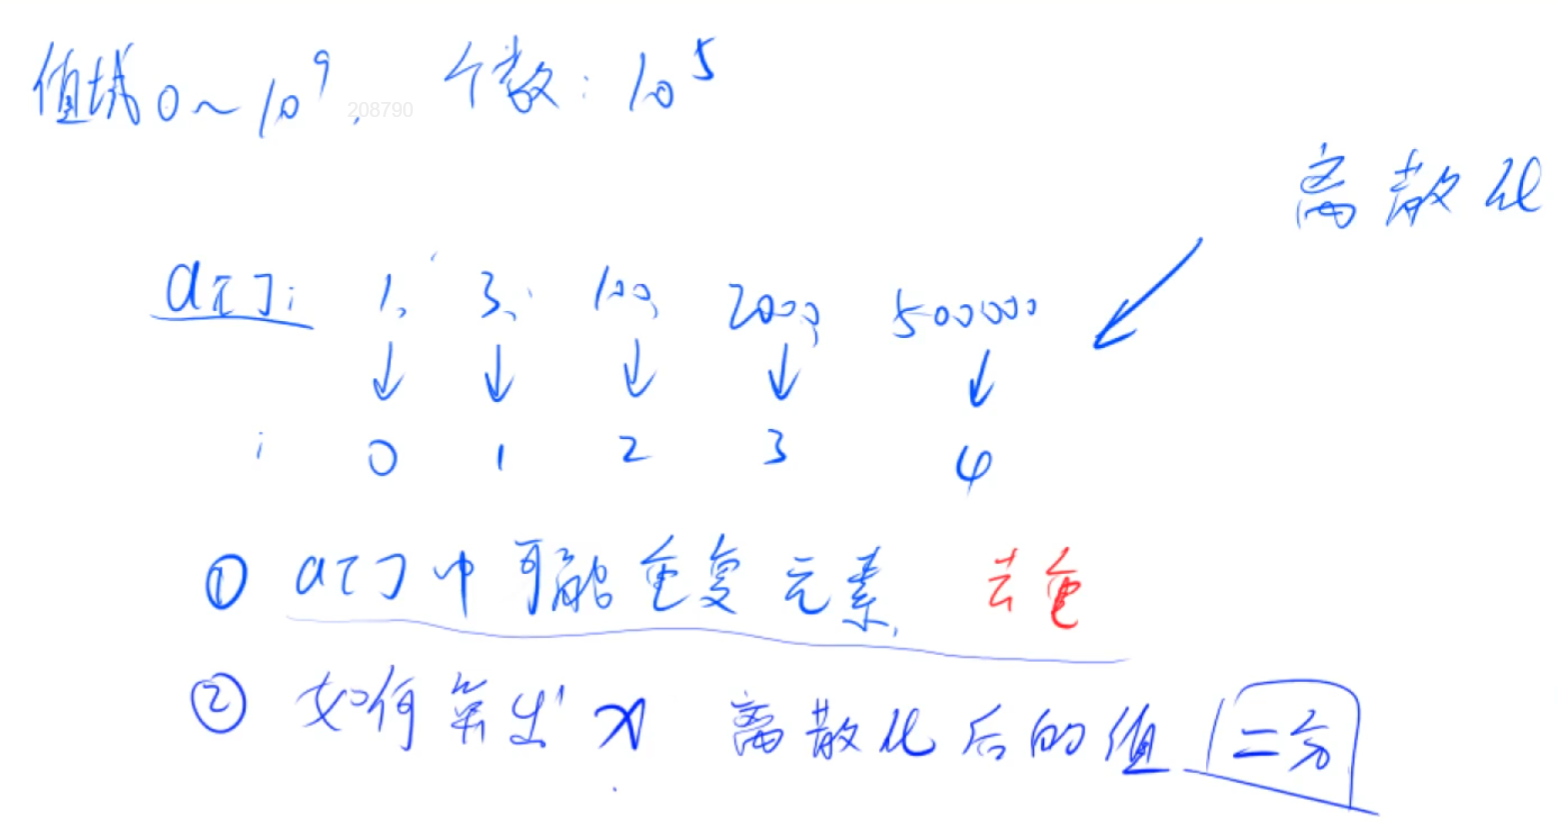 值域 0~10⁹, 个数: 10⁵
208790
离散化
a[]: 1, 3, 100, 2000, 500000
i 0 1 2 3 4
① a[]中可能重复元素, 去重
② 如何算出 x 离散化后的值 二分